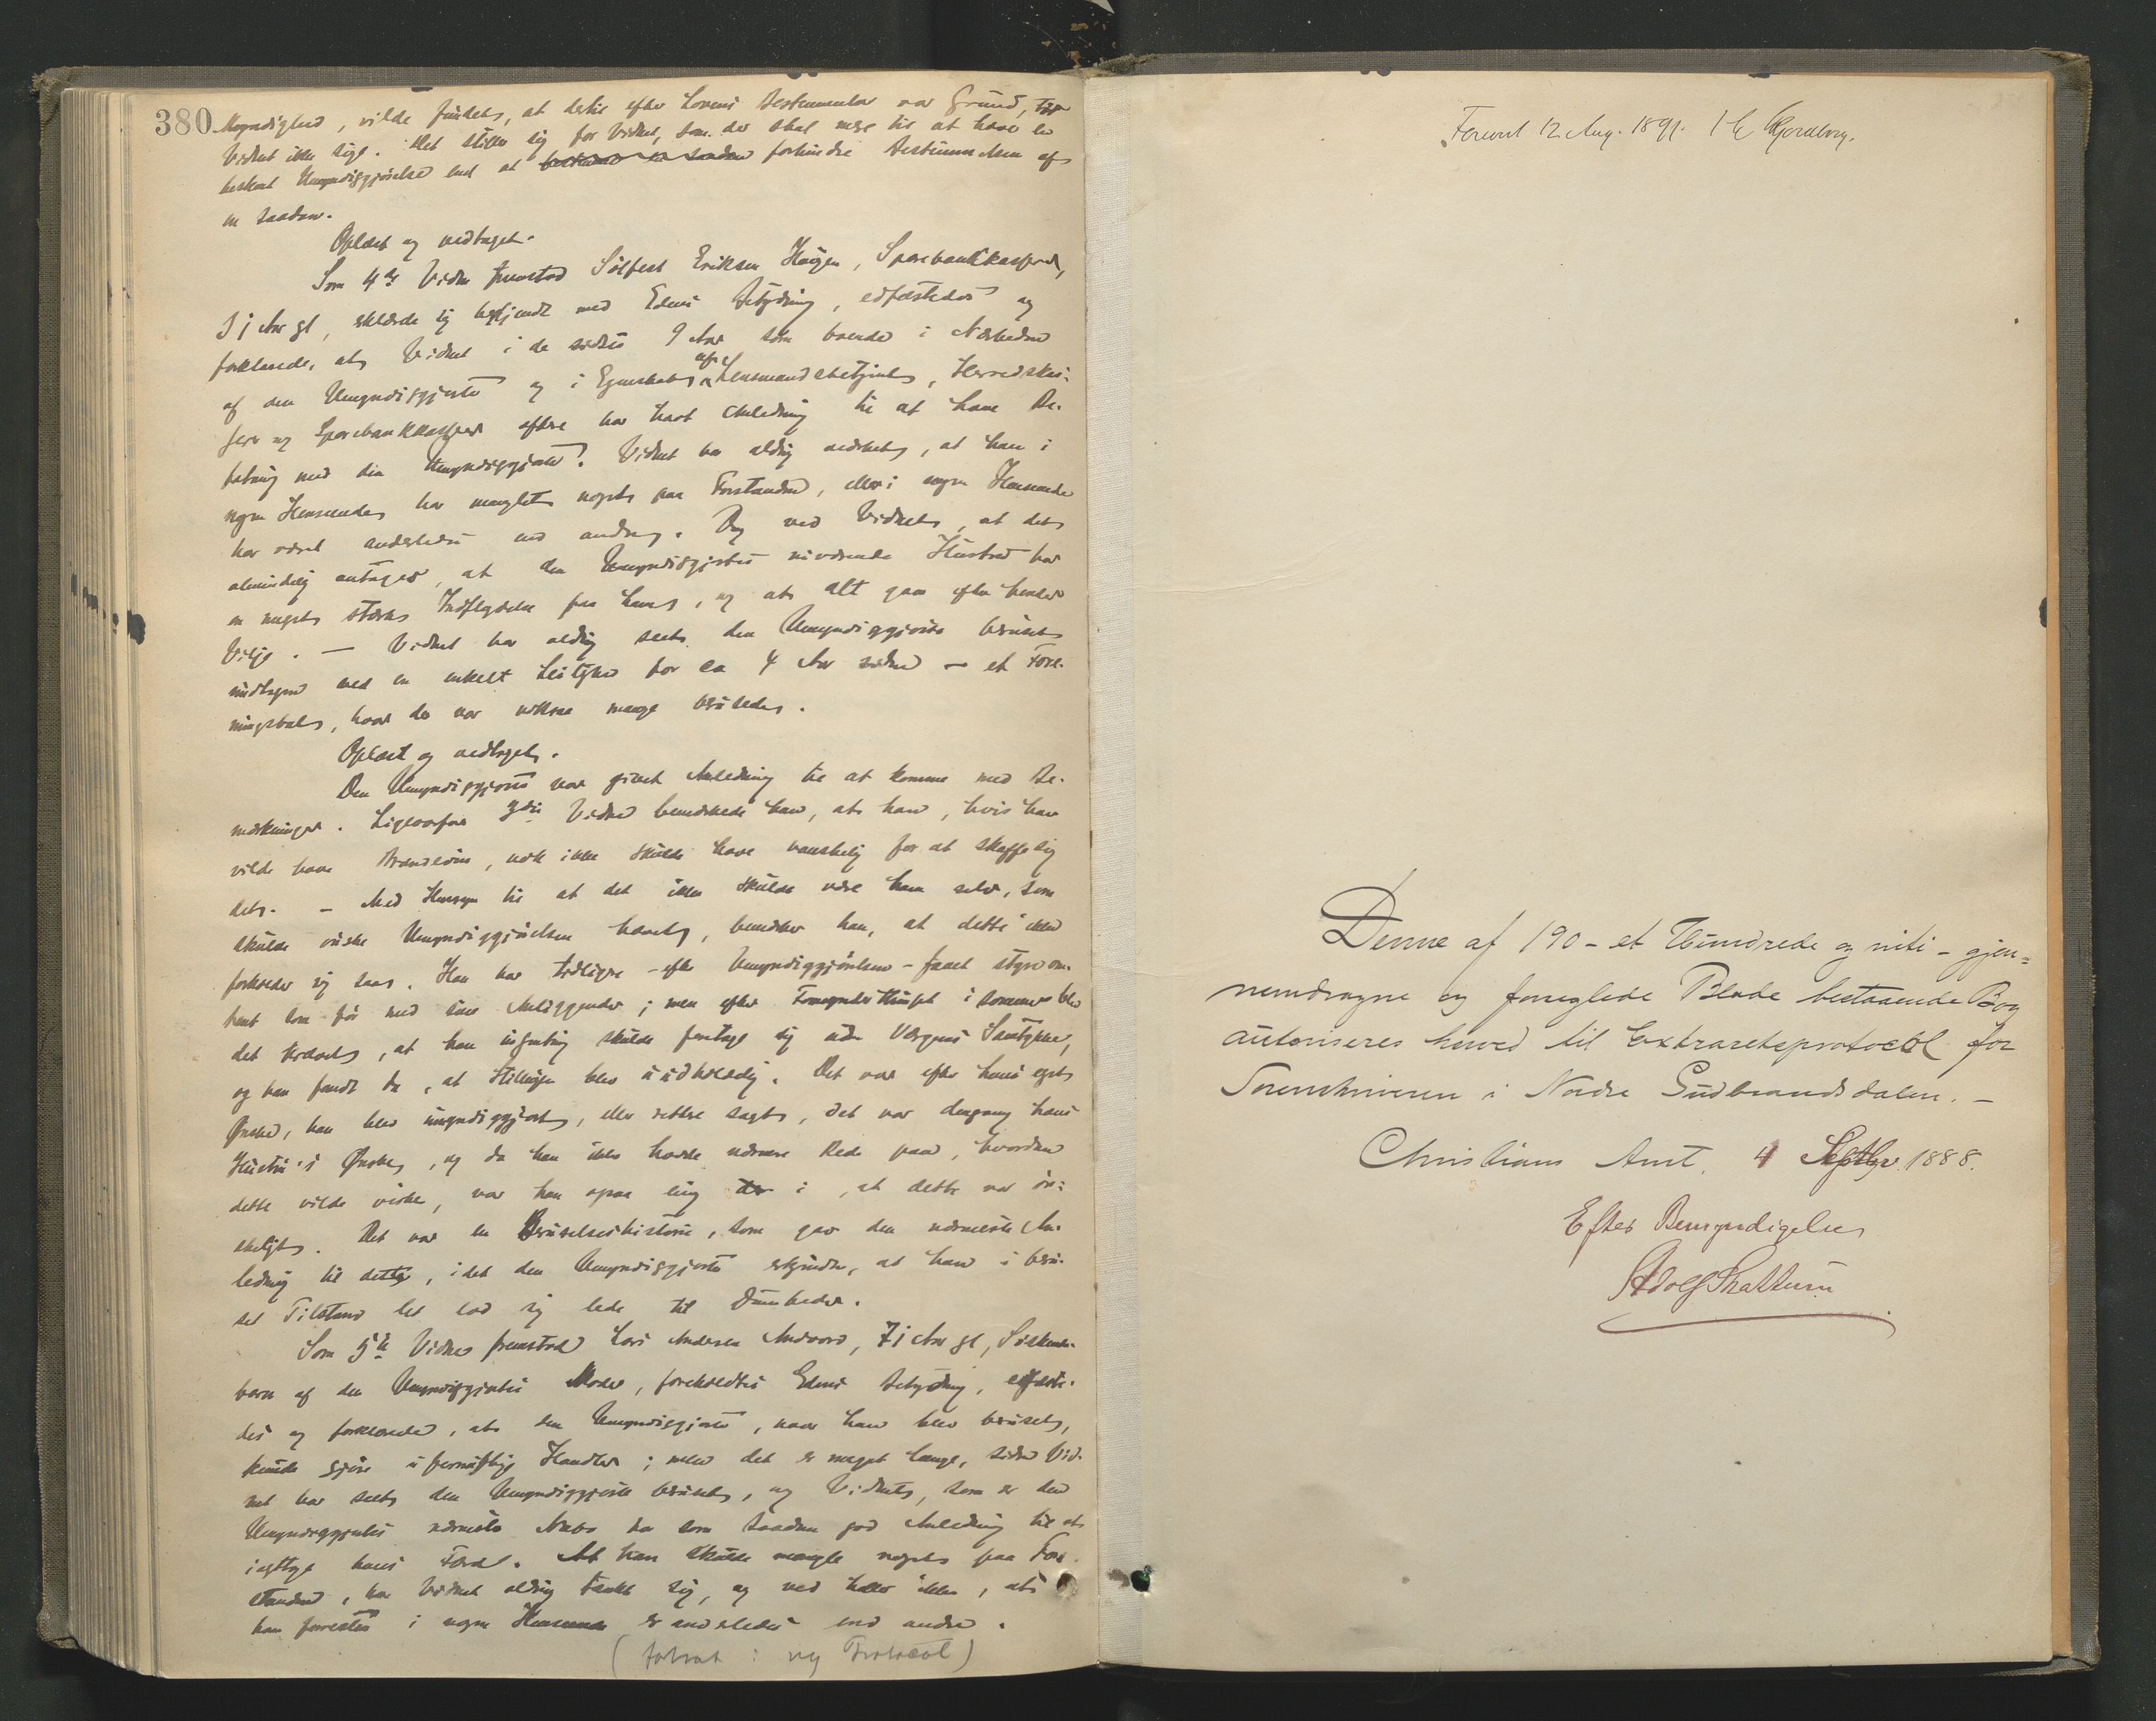 380
Myndighed, vilde findes, at dertil efter Lovens Bestemmelser var Grund, tør
Vidnet ikke sige. Det stiller sig for Vidnet, som der skal mere til at hæve en
beskeet Umyndiggjørelse end at forhindre Bestemmelsen af
en saadan.
Oplæst og vedtaget.
Som 4de Vidne fremstod Sølfest Eriksen Haugen, Sparebankkasserer,
51 Aar gl, erklærede sig bekjendt med Edens Betydning, edfæstedes og
forklarede, at Vidnet i de sidste 9 Aar som boende i Nærheden
af den Umyndiggjorte og i Egenskab af Lensmandsbetjent, Herredskas-
serer og Sparebankkasserer oftere har havt Anledning til at have Be-
fatning med den Umyndiggjorte. Vidnet har aldrig mærket, at han i
nogen Henseende har manglet noget paa Forstanden, eller i nogen Henseende
har været anderledes end andre. Dog ved Vidnet, at det
almindelig antages, at den Umyndiggjortes nuværende Hustru har
en meget stærk Indflydelse paa ham, og at alt gaar efter hendes
Vilje. — Vidnet har aldrig seet den Umyndiggjorte beruset
undtagen ved en enkelt Leilighed for ca 4 Aar siden — et Fore-
ningsbal, hvor der var voksne mange berusede.
Oplæst og vedtaget.
Den Umyndiggjorte var givet Anledning til at komme med Be-
mærkninger. Ligeoverfor 3die Vidne bemærkede han, at han, hvis han
vilde have Brændevin, nok ikke skulde have vanskelig for at skaffe sig
det. — Med Hensyn til at det ikke skulde være ham selv, som
skulde ønske Umyndiggjørelsen hævet, bemærker han, at dette ikke
forholder sig saa. Han har tidligere – efter Umyndiggjørelsen – faaet styre om-
trent som før med sine Anliggender; men efter Formynderthinget i Sommer blev
det krævet, at han ingenting skulde foretage sig uden Værgens Samtykke,
og han fandt da, at Stillingen blev uudholdelig. Det var efter hans eget
Ønske, han blev umyndiggjort, eller rettere sagt, det var dengang hans
Hustru's Ønske, og da han ikke havde nærmere Rede paa, hvordan
dette vilde virke, var han ogsaa enig i, at dette var øn-
skeligt. Det var en Beruselseshistorie, som gav den nærmeste An-
ledning til dette, idet den Umyndiggjorte erkjender, at han i beru-
set Tilstand let lod sig lede til Dumheder.
Som 5te Vidne fremstod Lars Andersen Andvord, 71 Aar gl, Søskende-
barn af den Umyndiggjortes Moder, foreholdtes Edens Betydning, edfæste-
des og forklarede, at den Umyndiggjorte, naar han blev beruset,
kunde gjøre ufornuftige Handler; men det er meget længe, siden Vid-
net har seet den Umyndiggjorte beruset, og Vidnet, som er den
Umyndiggjortes nærmeste Nabo har som saadan god Anledning til at
iagttage hans Færd. At han skulde mangle noget paa For-
standen, har Vidnet aldrig tænkt sig, og ved heller ikke, at
han forresten i nogen Henseende er anderledes end andre.
(fortsat i ny Protocol)
Forevist 12 Aug. 1891.
Denne af 190 – et Hundrede og niti – gjen=
nemdragne og forseglede Blade bestaaende Bog
autoriseres herved til Extraretsprotocol for
Sorenskriveren i Nordre Gudbrandsdalen. –
Christians Amt, 4 Septbr. 1888.
Efter Bemyndigelse